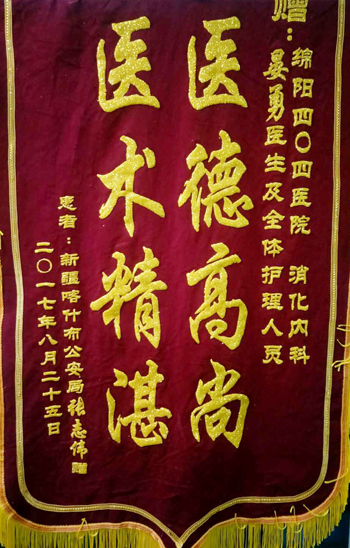 赠：绵阳四〇四医院 消化内科
晏勇医生及全体护理人员
医德高尚
医术精湛
患者：新疆喀什市公安局张志伟赠
二〇一七年八月二十五日